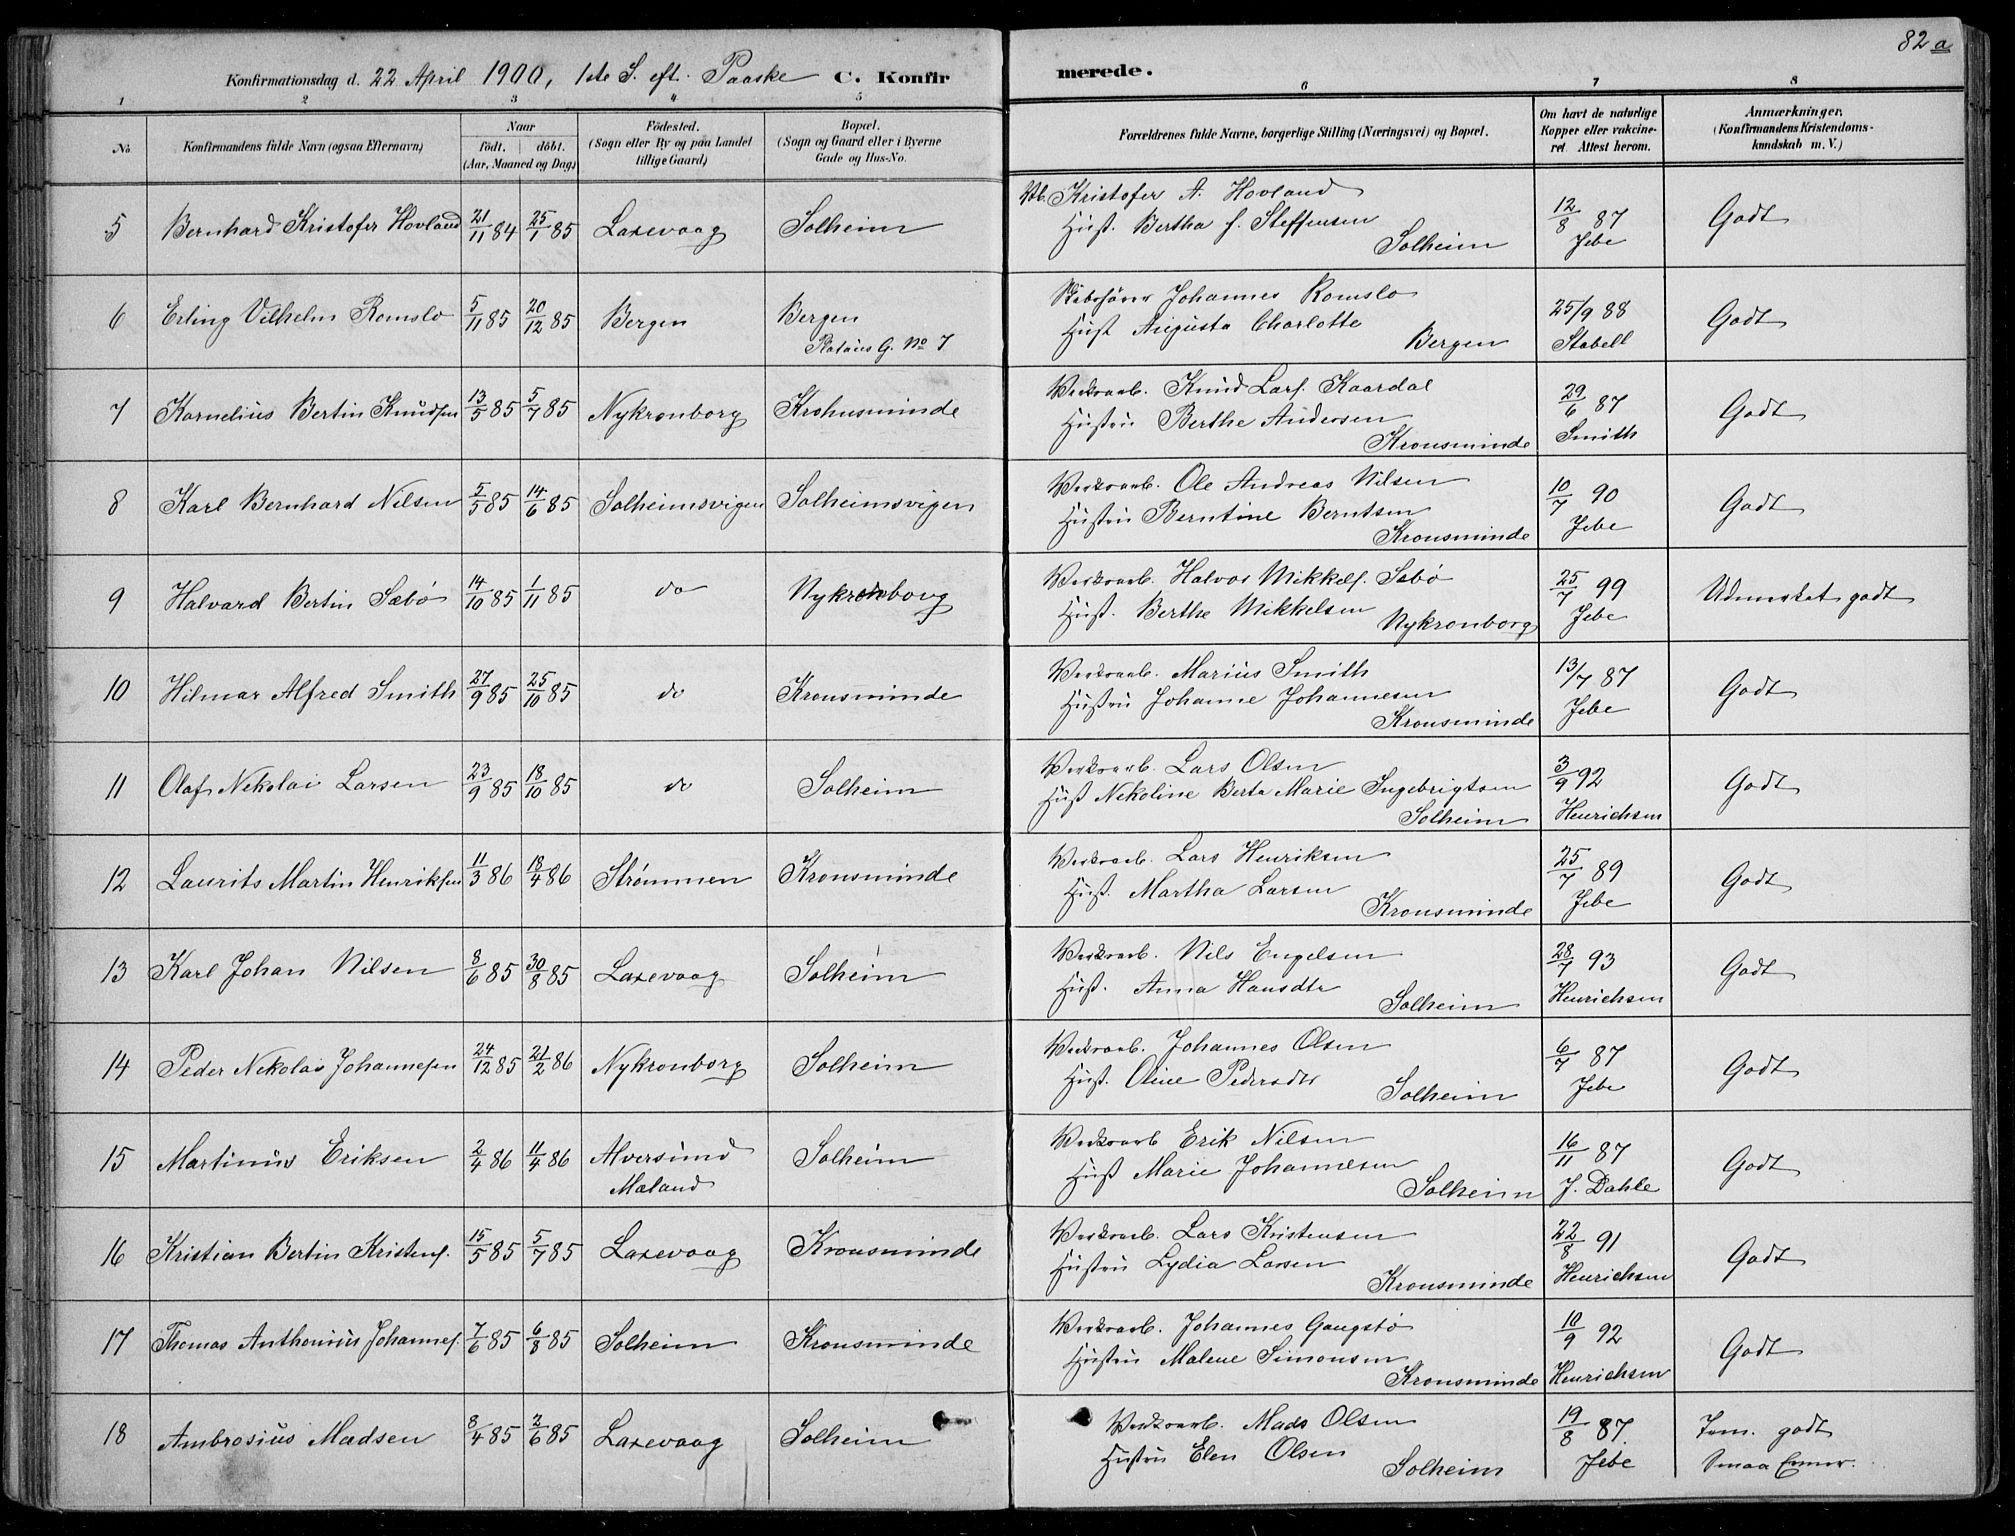 82 a
Konfirmationsdag d. 22 April 1900, 1ste S. eft. Paaske C. Konfir merede.
1 2 3 4 5 6 7 8
No Konfirmandens fulde Navn (ogsaa Efternavn) Naar født. døbt. (Aar, Maaned og Dag) Fødested. (Sogn eller By og paa Landet tillige Gaard) Bopæl. (Sogn og Gaard eller i Byerne Gade og Hus-No. Forældrenes fulde Navne, borgerlige Stilling (Næringsvei) og Bopæl. Om havt de naturlige Kopper eller vakcineret. Attest herom. Anmærkninger. (Konfirmandens Kristendomskundskab m. V.)
5 Bernhard Kristofer Hovland 21/11 84 25/1 85 Laxevaag Solheim Kristofer A. Hovland
Hust. Bertha f. Steffensen
Solheim 12/8 87 Jebe Godt
6 Erling Vilhelm Romslo 5/11 85 20/12 85 Bergen Bergen No 7 Johannes Romslo
Hust Augusta Charlotte
Bergen 25/9 88 Stabell Godt
7 Kornelius Bertin Knudsen 13/5 85 5/7 85 Nykronborg Krohnsminde Verksarb. Knud Lars. Kaardal
Hustru Berthe Andersen
Kronsminde 29/6 87 Smith Godt
8 Karl Bernhard Nilsen 5/5 85 14/6 85 Solheimsvigen Solheimsvigen Verksarb. Ole Andreas Nilsen
Hustru Berntine Berntsen
Kronsminde 10/7 90 Jebe Godt
9 Halvard Bertin Sæbø 14/10 85 1/11 85 do Nykronborg Verksarb. Halvor Mikkels. Sæbø
Hust. Berthe Mikkelsen
Nykronborg 25/7 99 Jebe Udmerket godt
10 Hilmar Alfred Smith 27/9 85 25/10 85 do Kronsminde Verksarb. Marius Smith
Hustru Johanne Johannesen
Kronsminde 13/7 87 Jebe Godt
11 Olaf Nekolai Larsen 23/9 85 18/10 85 do Solheim Verksarb. Lars Olsen
Hust Nekoline Berta Marie Ingebrigtsen
Solheim 3/9 92 Henrichsen Godt
12 Laurits Martin Henriksen 11/3 86 18/4 86 Strømmen Kronsminde Verksarb. Lars Henriksen
Hust. Martha Larsen
Kronsminde 25/7 89 Jebe Godt
13 Karl Johan Nilsen 8/6 85 30/8 85 Laxevaag Solheim Verksarb. Nils Engelsen
Hust. Anna Hansdtr
Solheim 28/7 93 Henrichsen Godt
14 Peder Nekolai Johannesen 24/12 85 21/2 86 Nykronborg Solheim Verksarb. Johannes Olsen
Hust. Oline Pedersdtr
Solheim 6/7 87 Jebe Godt
15 Martinus Eriksen 2/4 86 11/4 86 Alversund Mæland Solheim Verksarb Erik Nilsen
Hust Marie Johannesen
Solheim 16/11 87 J. Dahle Godt
16 Kristian Bertin Kristens. 15/5 85 5/7 85 Laxevaag Kronsminde Verksarb. Lars Kristensen
Hustru Lydia Larsen
Kronsminde 22/8 91 Henrichsen Godt
17 Thomas Anthonius Johannes. 7/6 85 6/8 85 Solheim Kronsminde Verksarb. Johannes Gangstø
Hustru Malene Simonsen
Kronsminde 10/9 92 Henrichsen Godt
18 Ambrosius Madsen 8/4 85 2/6 85 Laxevaag Solheim Verksarb. Mads Olsen
Hustru Elen Olsen
Solheim 19/8 87. Jebe Tem. godt
Smaa Evner.